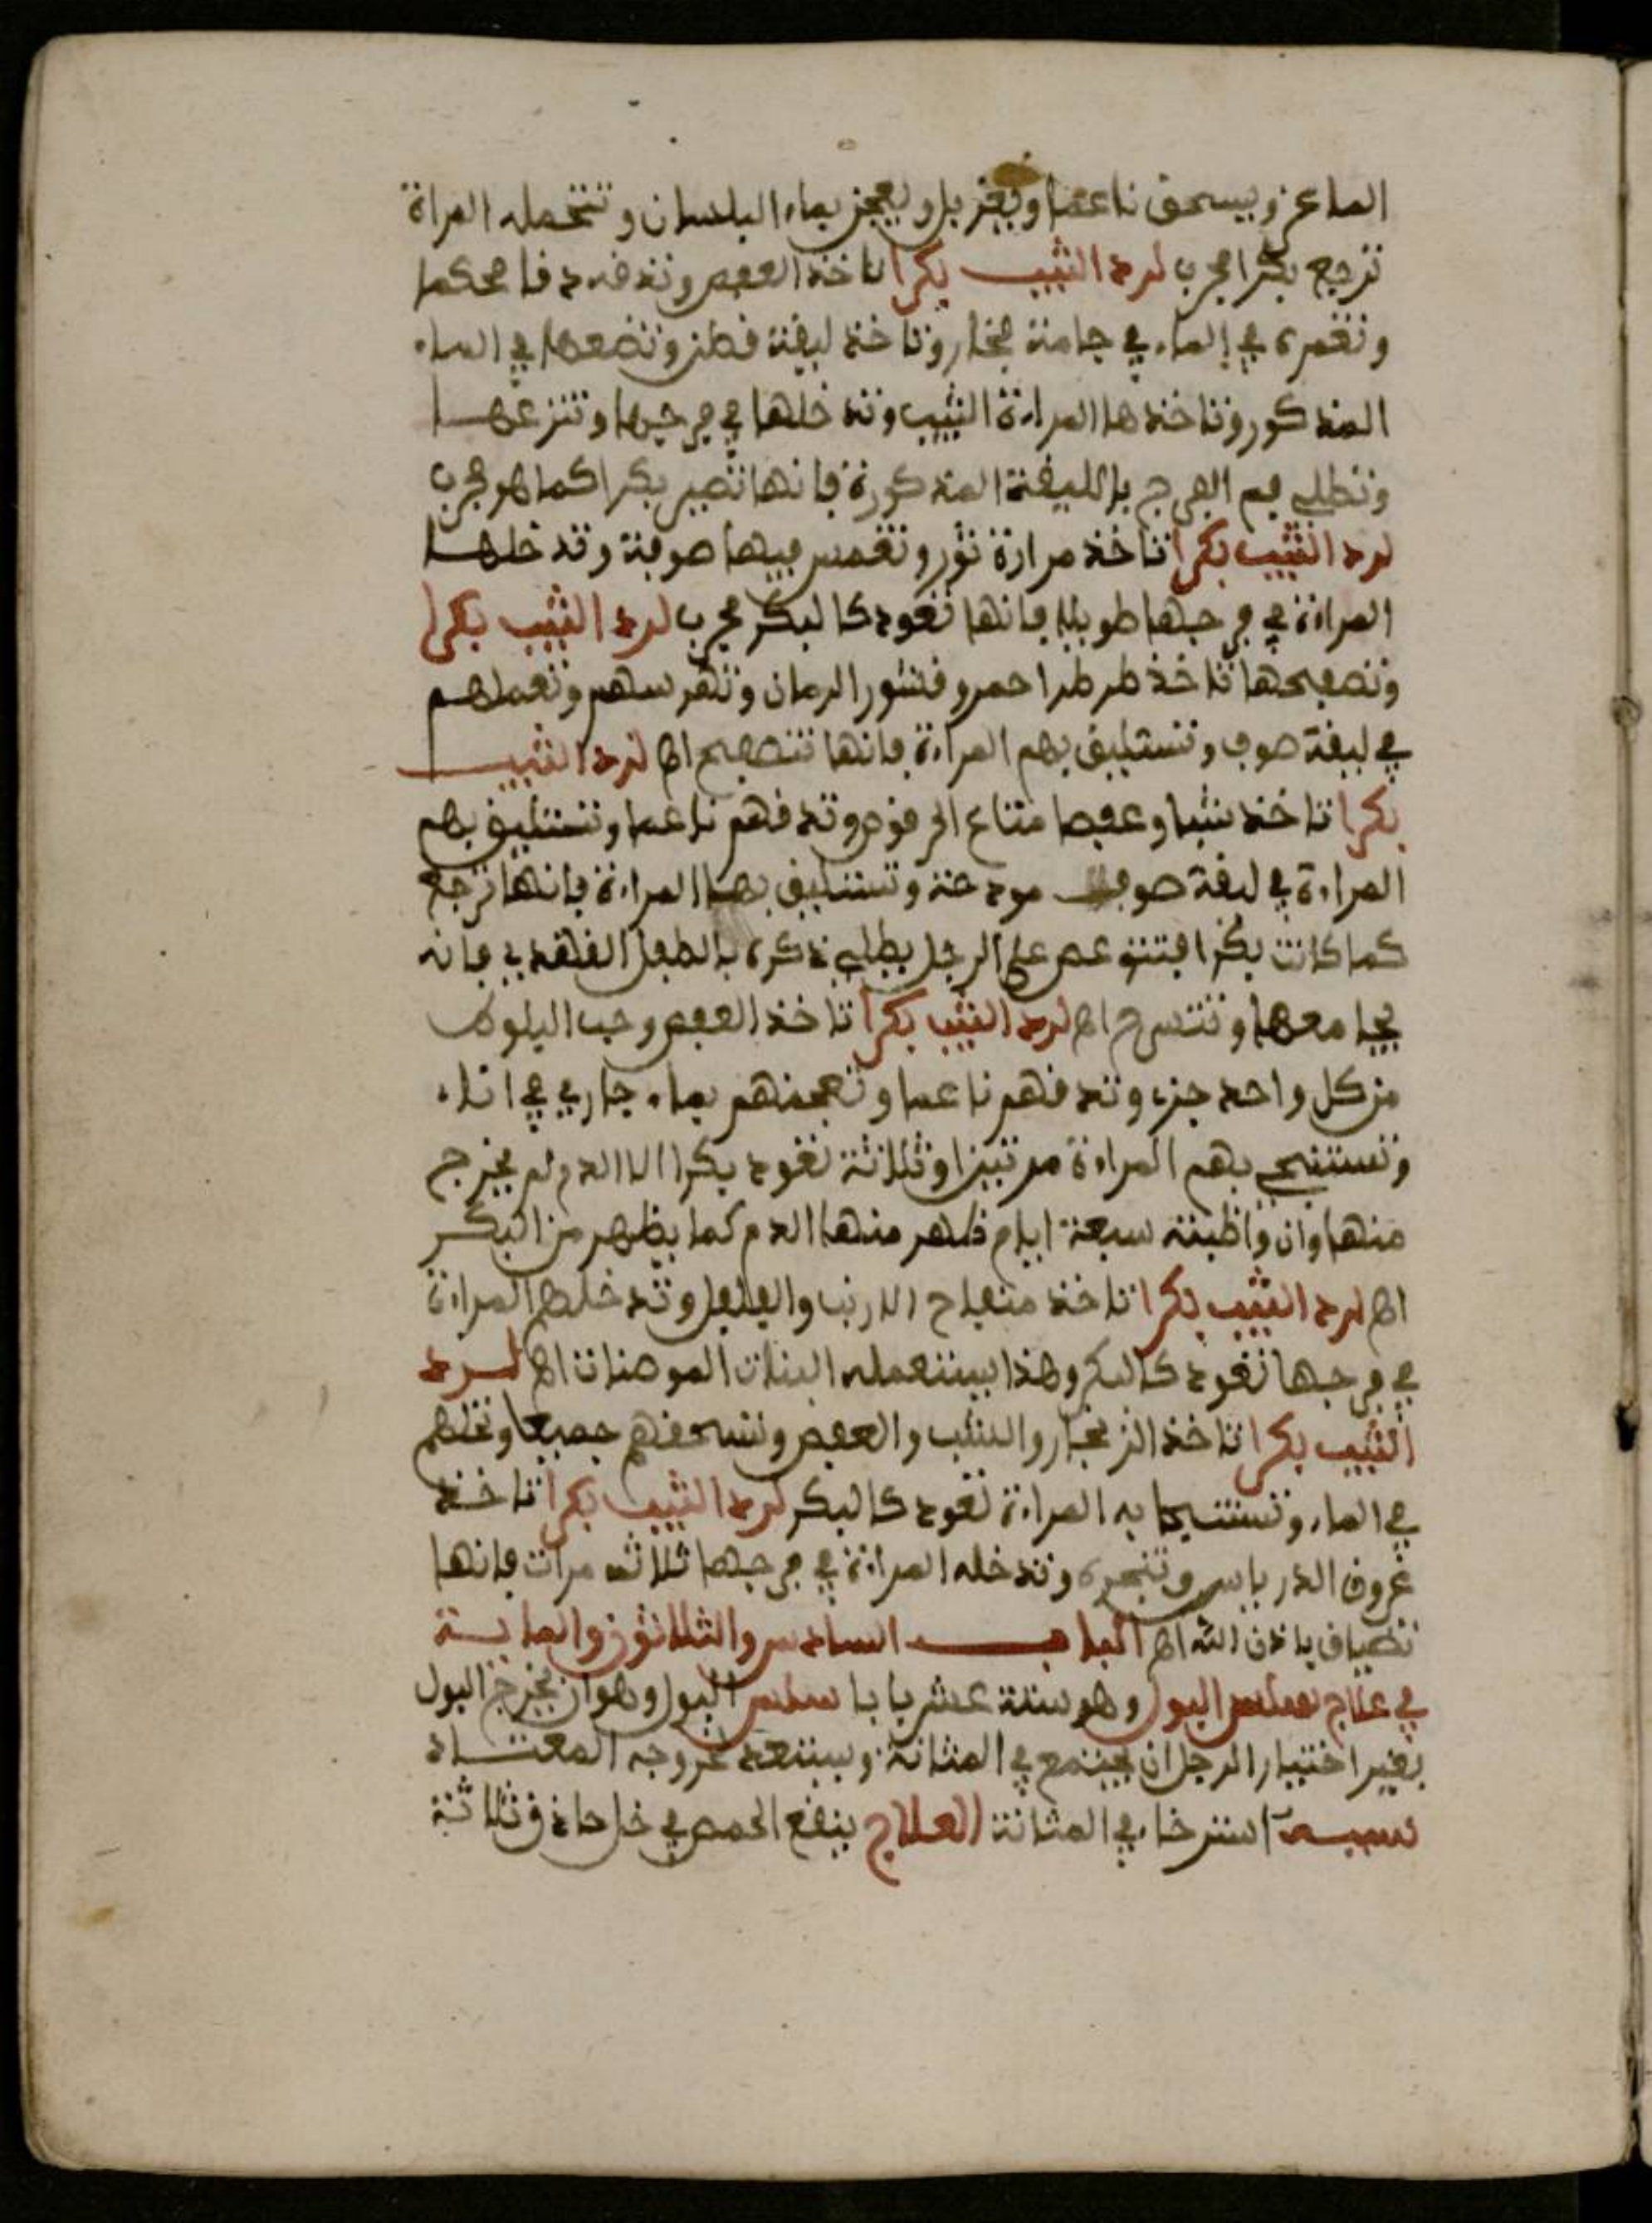 الماعز ويسحق ناعما ويغربل ويعجن بماء البلسان وتتحمله المراة
ترجع بكرا مجرب لرد الثيب بكرا تاخذ العفص وتدقه دقا محكما
وتغمره في الماء في جامنة فخار وتاخذ ليفة قطن وتضعها في الماء
المذكور وتاخذها المراءة الثيب وتدخلها في فرجها وتنزعها
وتطلي فم الفرج بالليفة المذكورة فانها تصير بكرا كما هو مجرب
لرد الثيب بكرا تاخذ مرارة ثور وتغمس فيها صوفة وتدخلها
المراءة في فرجها طويلا فانها تعود كالبكر مجرب لرد الثيب بكرا
وتصفيحها تاخذ طرطرا احمر وقشور الرمان وتهرسهم وتعملهم
في ليفة صوف وتستليق بهم المراءة فانها تتصفح اهـ لرد الثيب
بكرا تاخذ شبا وعفصا متاع الرقود وتدقهم ناعما وتستليق بهم
المراءة في ليفة صوف مودحة وتستليق بها المراءة فانها ترجع
كما كانت بكرا فتتوعص على الرجل يطلي ذكره بالطفل الفلقدي فانه
يجامعها وتتسرح اهـ لرد الثيب بكرا تاخذ العفص وحب البلوط
من كل واحد جزء وتدقهم ناعما وتعجنهم بماء جاري في اناء
وتستنجي بهم المراءة مرتين او ثلاثة تعود بكرا الا الدم لم يخرج
منها وان واظبته سبعة ايام ظهر منها الدم كما يظهر من البكر
اهـ لرد الثيب بكرا تاخذ منفاح الارنب والفلفل وتدخلهم المراءة
في فرجها تعود كالبكر وهذا يستعمله البنات المومنات اهـ لرد
الثيب بكرا تاخذ الزنجار والشب والعفص وتسحقهم جميعا وتحلهم
في الماء وتستنجا به المراءة تعود كالبكر لرد الثيب بكرا تاخذ
عروق الدرياس وتنجره وتدخله المراءة في فرجها ثلاثه مرات فانها
تضياق باذن الله اهـ الباب السادس والثلاثون والمايـة
في علاج سلس البول وهو ستة عشر بابا سلس البول وهو ان يخرج البول
بغير اختيار الرجل ان يجتمع في المثانة ويستعد لخروجه المعتاد
سببه استرخاء في المثانة العلاج ينقع الحمص في خل حاذق ثلاثة